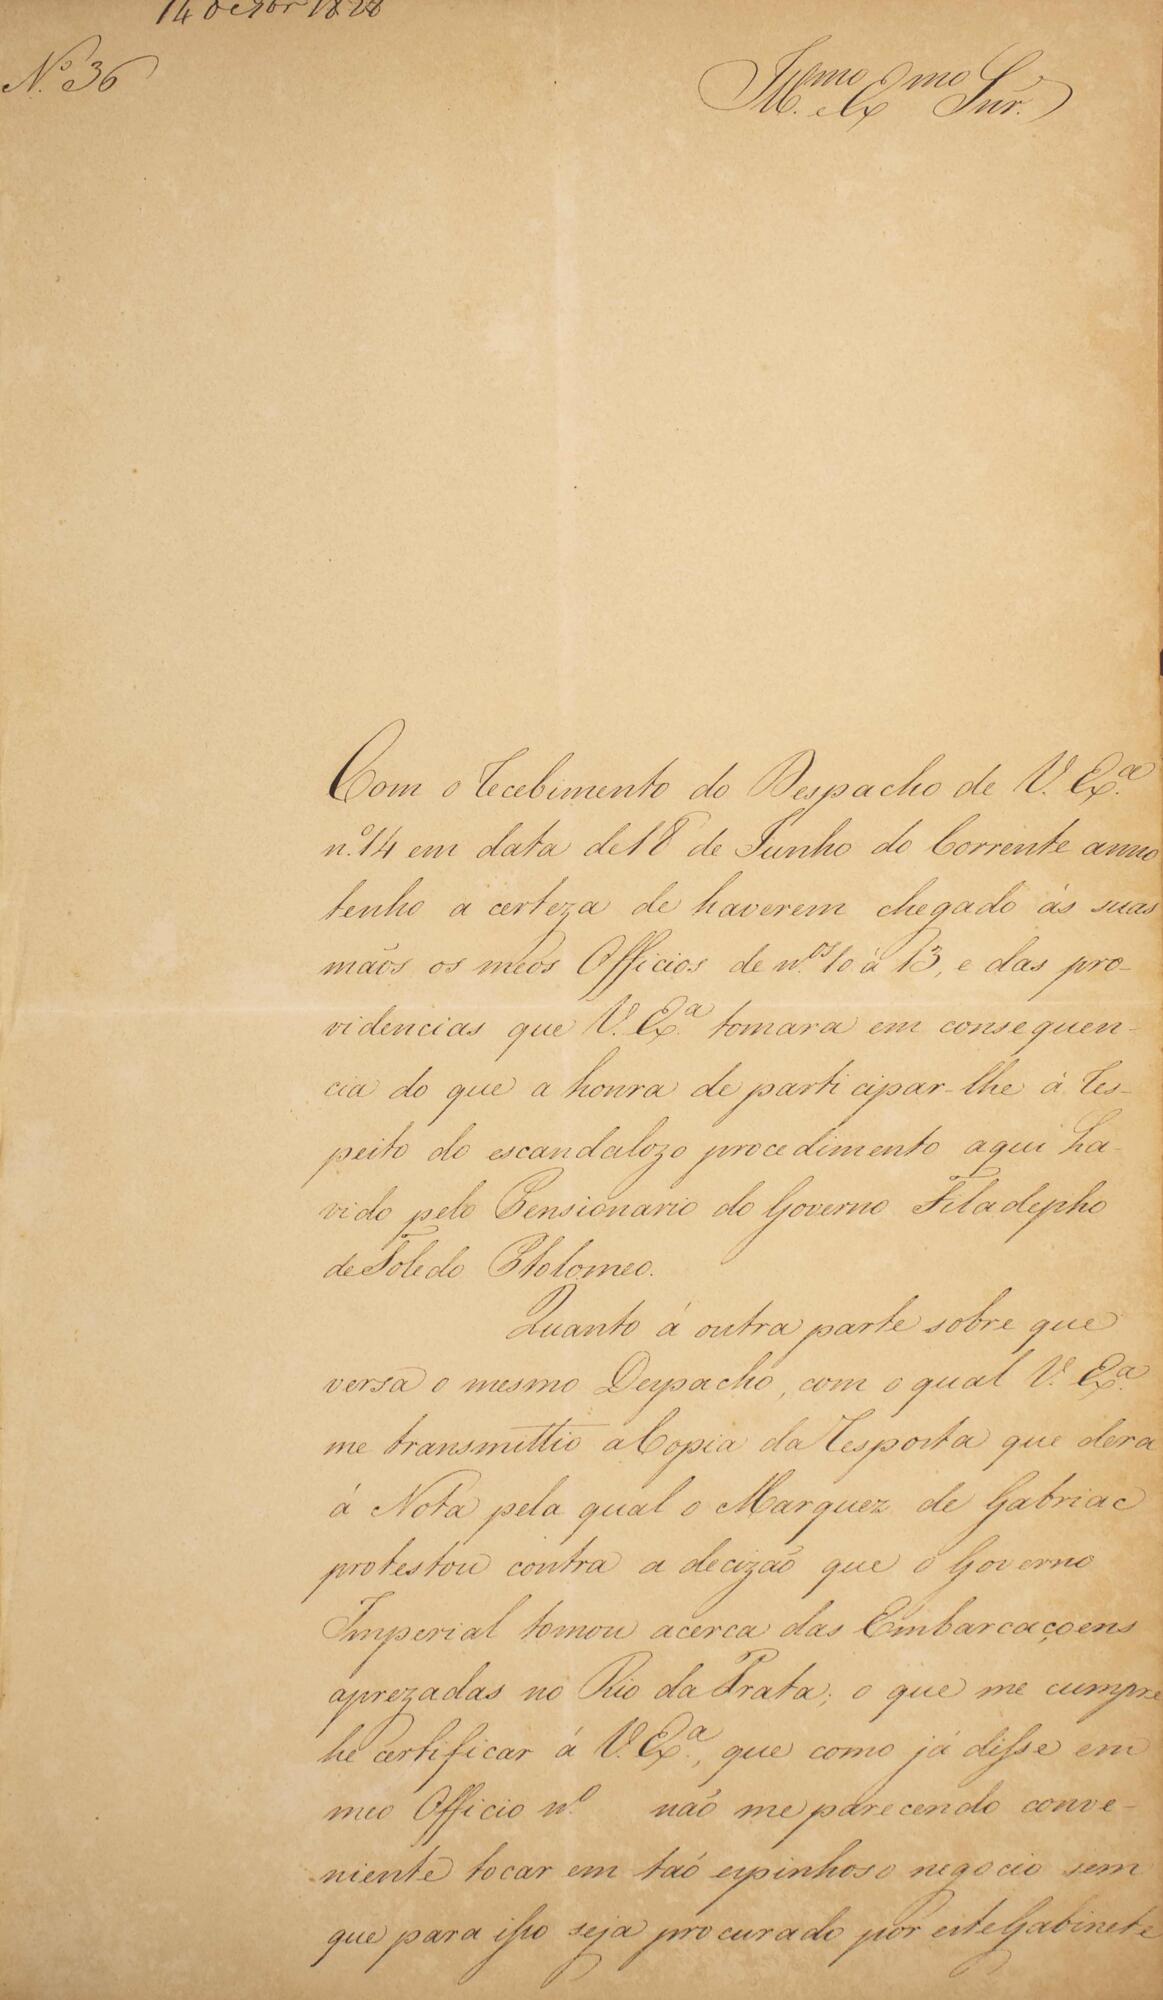 14 Octbr 1828
N.º 36
Ill.mo Ex.mo Snr.
Com o recebimento do Despacho de V. Ex.ª
n.º 14 em data de 18 de Junho do Corrente anno
tenho a certeza de haverem chegado ás suas
mãos os meos Officios de n.os 10 á 13, e das pro-
videncias que V. Ex.ª tomara em consequen-
cia do que a honra de participar-lhe á res-
peito do escandalozo procedimento aqui ha-
vido pelo Pensionario do Governo Filadepho
de Toledo Ptolomeo.
Quanto á outra parte sobre que
versa o mesmo Despacho, com o qual V. Ex.ª
me transmittio a Copia da resposta que dera
á Nota pela qual o Marquez de Gabriac
protestou contra a decizão que o Governo
Imperial tomou acerca das Embarcaçoens
aprezadas no Rio da Prata; o que me cumpre
he certificar á V. Ex.ª, que como já disse em
meo Officio n.º não me parecendo conve-
niente tocar em taõ espinhoso negocio sem
que para isso seja procurado por este Gabinete